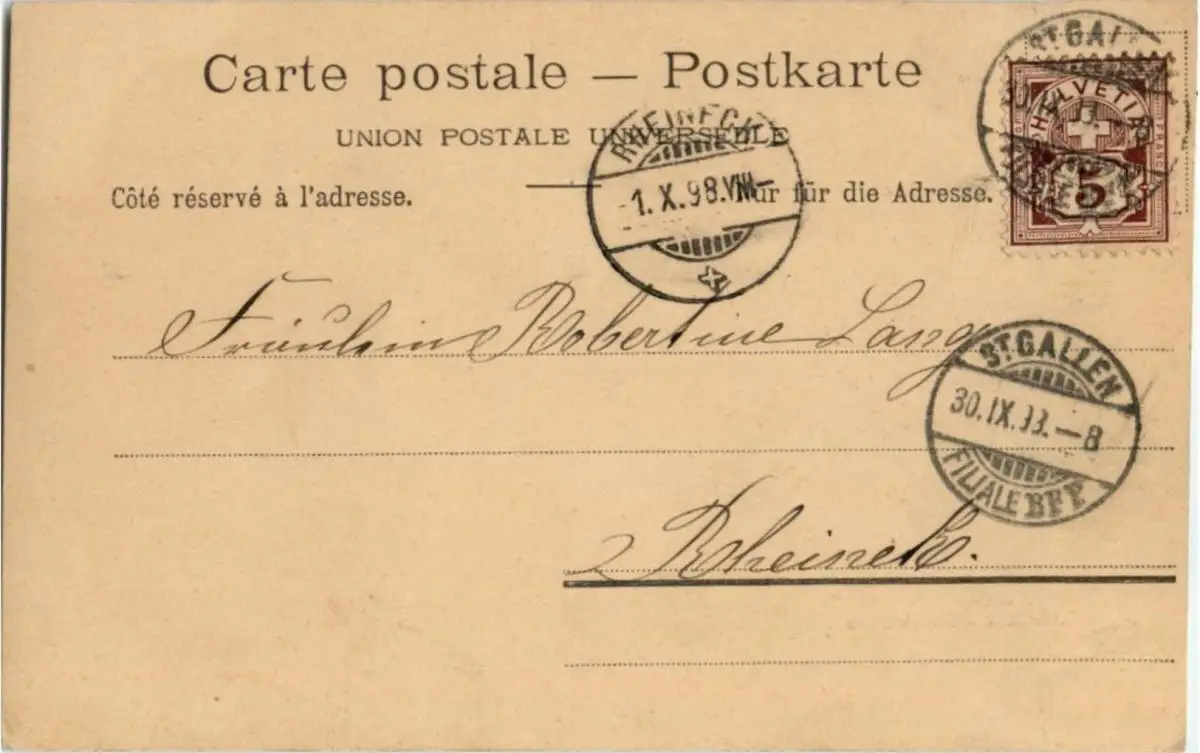 Carte postale — Postkarte
UNION POSTALE UNIVERSELLE
Côté réservé à l'adresse. Nur für die Adresse.
RHEINECK
1. X. 98. VIII—
ST. GALLEN
HELVETIA
FRANCO
5
Fräulein Robertine Lang
ST. GALLEN
30. IX. 93. — 8
FILIALE BFF.
Rheineck.